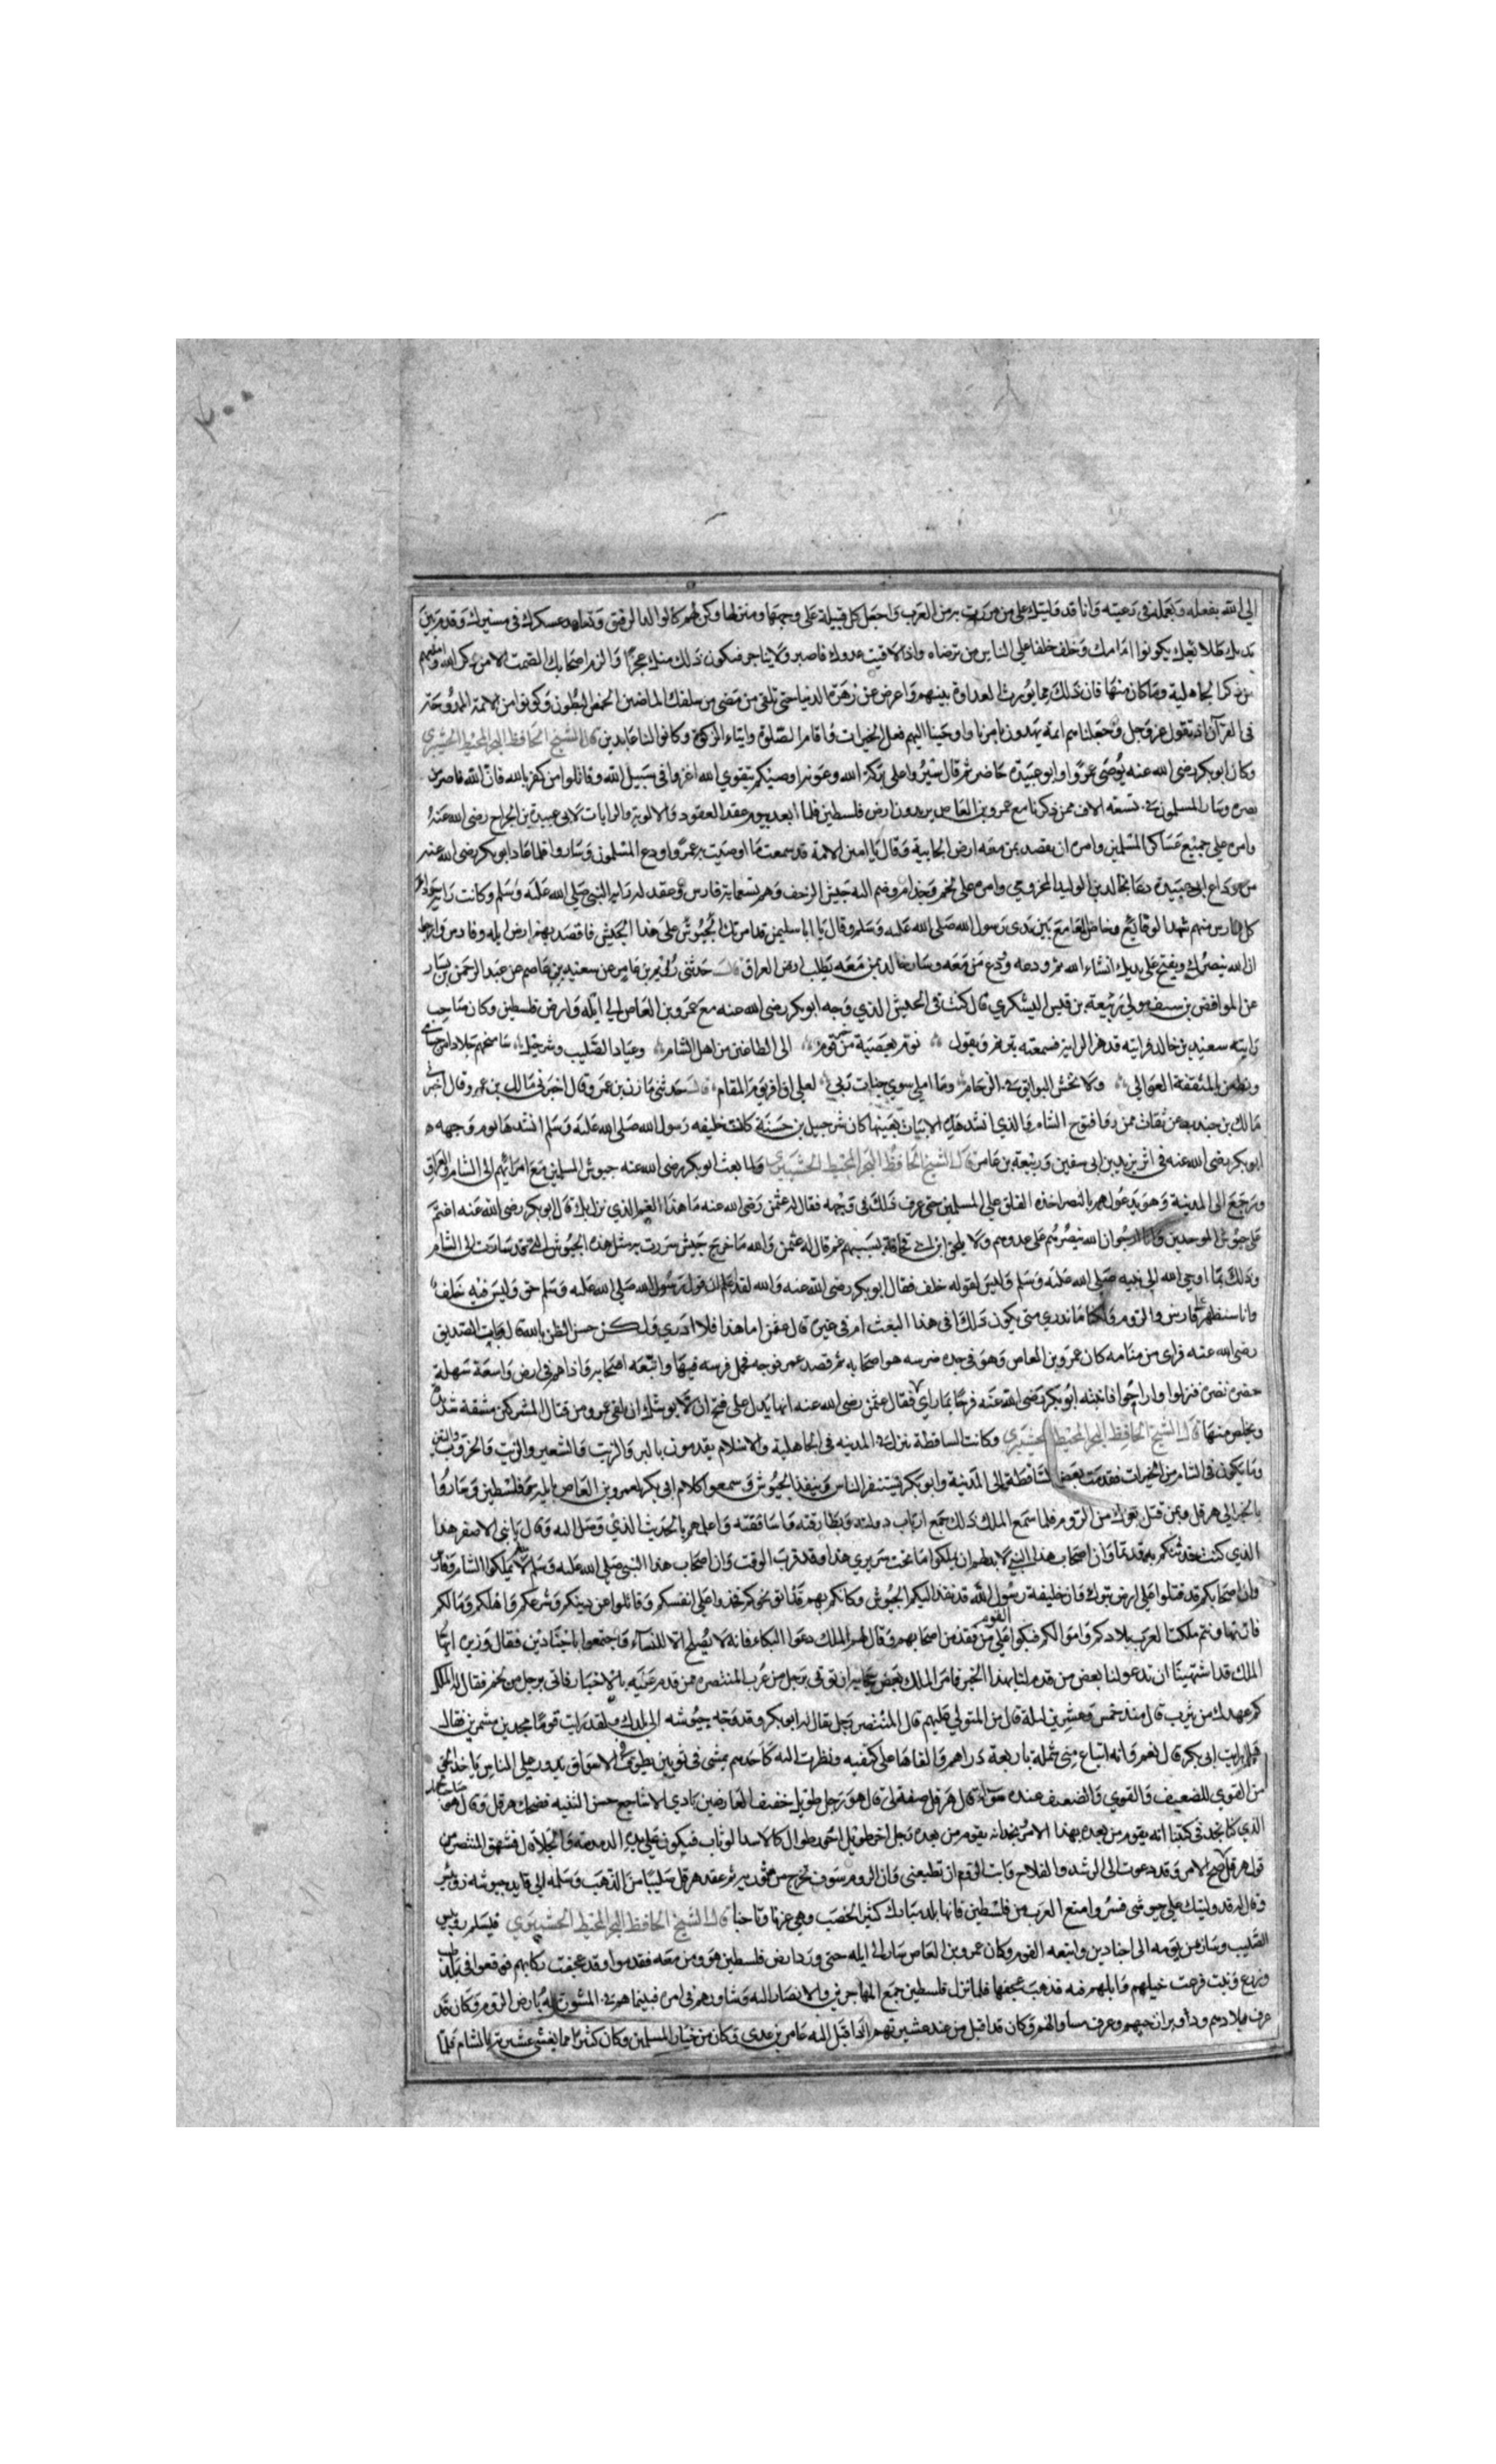 الي الله بفعله وبعمله في رعيته وانا قد وليتك علي من مررت به من العرب واجعل كل قبيلة علي وجهتها ومنزلها وكن لهم كالوالد الرفيق وتعاهد عسكرك في مسيرك وقدم بين
يديك طلائعك يكونوا امامك وخلف خلفا علي الناس من ترضاه واذا لاقيت عدوك فاصبر ولا يتاخر فيكون ذلك منك عجزا والزم اصحابك الصمت الا من ذكر الله وامنعهم
من ذكر الجاهلية وما كان منها فان ذلك مما يورث العداوة بينهم واعرض عن زهرة الدنيا حتي تلقي من مضي من سلفك الماضين الخمص البطون وكونوا من الائمة الممدوحة
في القرآن اذ يقول عز وجل وجعلناهم ائمة يهدون بامرنا واوحينا اليهم فعل الخيرات واقام الصلوة وايتاء الزكوة وكانوا لنا عابدين قال الشيخ الحافظ البحر المحيط الحشيبري
وكان ابو بكر رضي الله عنه يوصي عمروا وابو عبيدة حاضر ثم قال سيروا علي بركة الله وعونه اوصيكم بتقوي الله اغزوا في سبيل الله وقاتلوا من كفر بالله فان الله ناصر من
نصره وسار المسلمون في تسعة الاف ممن ذكرنا مع عمرو بن العاص يريدون ارض فلسطين فلما ابعد يوم عقد العقود والالوية والرايات لابي عبيدة بن الجراح رضي الله عنه
وامره علي جميع عساكر المسلمين وامره ان يقصد بمن معه ارض الجابية وقال يا امين الامة قد سمعت ما اوصيت به عمروا وودع المسلمون وساروا فلما عاد ابو بكر رضي الله عنه
من وداع ابي عبيدة دعا بخالد بن الوليد المخزومي وامره علي لخم وجذام وضم اليه جيش الزحف وهم تسعماية فارس وعقد له راية النبي صلي الله عليه وسلم وكانت راية
كل فارس منهم شهد الوقايع وخاض المعامع بين يدي رسول الله صلي الله عليه وسلم وقال يا ابا سليمن قد امرتك الجيوش علي هذا الجيش فاقصد بهم ارض ايله وفارس
ان الله ينصرك ويفتح علي يديك انشاء الله ثم ودعه وودع من معه وسار خالد بمن معه يطلب ارض العراق قال حدثني بن عامر عن سعيد بن عاصم عن عبد الرحمن بن يسار
عن الموافض بن سيف مولي ربيعة بن قيس اليشكري قال كنت في الجيش الذي وجه ابو بكر رضي الله عنه مع عمرو بن العاص الي ايله وارض فلسطين وكان صاحب
رايته سعيد بن خالد فرايته قد هز الراية فسمعته يقول نوم بعصبة من خير قوم الي الطاغين من اهل الشام وعباد الصليب
ونطعن بالمثقفة العوالي ولا نخش البوايق في الزحام وما املي سوي جنات ربي لعلي ان افز يوم المقام قال حدثني مازن بن عمر وقال اخبرني مالك بن عمرو قال اخبرني
مالك بن جندب عن ثقات ممن روا فتوح الشام والذي انشد هذه الابيات بعينها كان شرحبيل بن حسنة كاتب خليفه رسول الله صلي الله عليه وسلم انشدها يوم وجهه
ابو بكر رضي الله عنه في اثر يزيد بن ابي سفين وربيعة بن عامر قال الشيخ الحافظ البحر المحيط الحشيبري ولما بعث ابو بكر رضي الله عنه جيوش المسلمين مع امرائهم الي الشام والعراق
ورجع الي المدينة وهو يدعو لهم بالنصر اخذه القلق علي المسلمين حتي عرف ذلك في وجهه فقال له عثمن رضي الله عنه ما هذا الغم الذي نزل بك قال ابو بكر رضي الله عنه اغتم
علي جيوش الموحدين وانا ارجوا ان الله ينصرهم علي عدوهم ولا ابن ابي قحافة بسببهم غم قال له عثمن والله ما خرج جيش سررت به مثل هذه الجيوش التي قد سارت الي الشام
وذلك مما اوحي الله الي نبيه صلي الله عليه وسلم وليس لقوله خلف فقال ابو بكر رضي الله عنه والله لقد علم ان قول رسول الله صلي الله عليه وسلم حق وليس فيه خلف
وانا سنظهر علي فارس والروم ولكنا ما ندري متي يكون ذلك افي هذا البعث ام في غيره قال عثمن اما هذا فلا ادري ولكن حسن الظن بالله الصديق
رضي الله عنه فراي من منامه كان عمرو بن العاص وهو في جده هو واصحابه ثم قصد عمرو فحمل فرسه فيها واتبعه اصحابه فاذا هم في ارض واسعة سهلة
خضره نضره فنزلوا واراحوا فانتبه ابو بكر رضي الله عنه فرحا بما راي فقال عثمن رضي الله عنه انها يدل علي فتح لا يوشك ان يلقي عمرو من قتال المشركين مشقة شديدة
ويخلص منها قال الشيخ الحافظ البحر المحيط الحشيبري وكانت الساقطة تنزل المدينه في الجاهلية والاسلام يقدمون بالبر والزيت والشعير والزيت والخروب والتين
وما يكون في الشام من الخيرات فقدمت بعض الساقطة الي المدينة وابو بكر يستنفر الناس وينفذ الجيوش وسمعوا كلام ابي بكر لعمرو بن العاص بايليه وفلسطين وساروا
بالخبر الي هرقل وبمن قتل بتبوك من الروم فلما سمع الملك ذلك جمع ارباب دولته وبطارقته واساقفته واعلمهم بالحديث الذي وصل اليه وقال يا بني الاصفر هذا
الذي كنت حدثتكم به قديما وان اصحاب هذا النبي لابد لهم ان يملكوا ما تحت سريري هذا وقد قرب الوقت وان اصحاب هذا النبي صلي الله عليه وسلم يملكوا الشام وفارس
وان اصحابكم قد قتلوا علي ارض تبوك وان خليفة رسول الله قد نفذ اليكم الجيوش وكانكم بهم قد اتو نحوكم فخذوا علي انفسكم وقاتلوا عن دينكم وشرعكم واهلكم ومالكم
فان تهاونتم ملكت العرب بلادكم واموالكم فبكوا القوم علي من فقد من اصحابهم وقال لهم الملك دعوا البكاء فانه لا يصلح الا للنساء فاجتمعوا باجنادين فقال وزيره ايها
الملك قد اشتهينا ان تدعو لنا بعض من قدم لنا بهذا الخبر فامر الملك بعض حجابه ان توتي برجل من عرب المنتصره ممن قدم عليه بالاخبار فاتي برجل من لخم فقال له الملك
كم عهدك من يثرب قال منذ خمس وعشرين ليلة قال من المتولي عليهم قال المتنصر رجل يقال له ابو بكر وقد وجه جيوشه الي بلدك ولقد رايت قوما مجدين مشمرين فقال
فهل رايت ابي بكر قال نعم وانه ابتاع مني شملة باربعة دراهم والقاها علي كتفيه ونظرت اليه كاحدهم يمشي في ثوبين يطوف في الاسواق يدور علي الناس ياخذ الحق
من القوي للضعيف والقوي والضعيف عنده سواء قال هرقل صفه لي قال هو رجل طويل خفيف العارضين بادي الاشاجع حسن الثنيه فضحك هرقل وقال هو
الذي كنا نجد في كتبنا انه يقوم من بعده بهذا الامر ونجد انه يقوم من بعده رجل اخر طويل احمر طوال كالاسد الوثاب فيكون علي يديه الدمدمة والجلاء فشهق المتنصر من
قول هرقل صح الامر وقد دعوت الي الرشد والفلاح وابت الروم ان تطيعني وان الروم سوف تخرج من ثم عقد هرقل صليبا من الذهب وسلمه الي قايد جيوشه روبيس
وقال له قد وليتك علي جيوشي فسر وامنع العرب من فلسطين فانها بلد مبارك كثير الخصب وهي عزنا وتاجنا قال الشيخ الحافظ البحر المحيط الحشيبري فتسلم روبيس
الصليب وسار من يومه الي اجنادين واتبعه القوم وكان عمرو بن العاص سار الي ايله حتي ورد ارض فلسطين هو ومن معه فقدموا وقد عجفت ركابهم فوقعوا في بلاد
وزرع ونبت فرعت خيلهم وابلهم فيه فذهب عجفها فلما نزل فلسطين جمع المهاجرين والانصار اليه وشاورهم في امره فبينما هم في المشورة بارض الروم وكان قد
عرف بلادهم وداوسها وعرف مسالكهم وكان قد اقبل من عند عشيرتهم اذ اقبل اليه عامر بن عدي وكان من خيار المسلمين وكان كثيرا ما يغشي عشيرته بالشام فلما